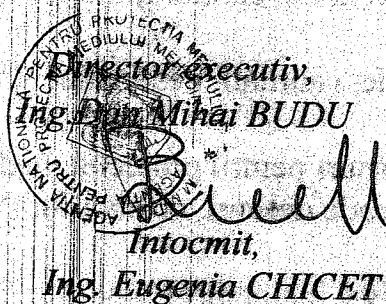 Director executiv,
Ing.Dan Mihai BUDU
Intocmit,
Ing. Eugenia CHICET
AGENTIA NATIONALA PENTRU PROTECTIA MEDIULUI
PENTRU PROTECTIA MEDIULUI